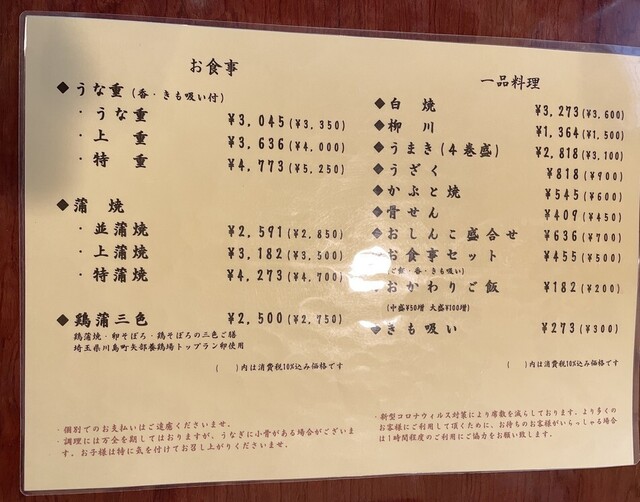 お食事
◆うな重(香・きも吸い付)
・うな重 ¥3,045(¥3,350)
・上重 ¥3,636(¥4,000)
・特重 ¥4,773(¥5,250)
◆蒲焼
・並蒲焼 ¥2,591(¥2,850)
・上蒲焼 ¥3,182(¥3,500)
・特蒲焼 ¥4,273(¥4,700)
◆鶏蒲三色 ¥2,500(¥2,750)
鶏蒲焼・卵そぼろ・鶏そぼろの三色ご膳
埼玉県川島町矢部養鶏場トップラン卵使用
( )内は消費税10%込み価格です
・個別でのお支払いはご遠慮くださいませ。
・調理には万全を期しておりますが、うなぎに小骨がある場合がございま
す。お子様は特に気を付けてお召し上がりくださいませ。
一品料理
◆白焼 ¥3,273(¥3,600)
◆柳川 ¥1,364(¥1,500)
◆うまき(4巻盛) ¥2,818(¥3,100)
◆うざく ¥818(¥900)
◆かぶと焼 ¥545(¥600)
◆骨せん ¥409(¥450)
◆おしんこ盛合せ ¥636(¥700)
◆お食事セット ¥455(¥500)
(ご飯・香・きも吸い)
◆おかわりご飯 ¥182(¥200)
(中盛¥50増 大盛¥100増)
◆きも吸い ¥273(¥300)
( )内は消費税10%込み価格です
・新型コロナウィルス対策により席数を減らしております。より多くの
お客様にご利用して頂くために、お待ちのお客様がいらっしゃる場合
は1時間程度のご利用にご協力をお願い致します。